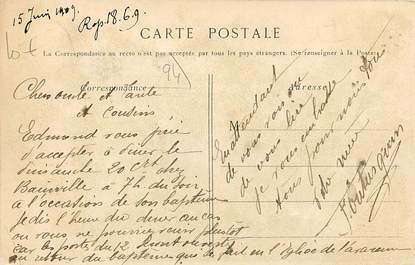 15 Juin 1909.
Rep. 18.6.9.
CARTE POSTALE
La Correspondance au recto n'est pas acceptée par tous les pays étrangers. (Se renseigner à la Poste)
Correspondance
Adresse
94
Cher oncle et tante
et cousins
Edmond vous prie
d'accepter à diner le
dimanche 20 Ct chez
à 7h du soir
à l'occasion de son baptême
je dis l'heure du diner au cas
ou vous ne pourriez venir plutot
car les portes du
au retour du baptême qui se fait en l'Eglise de
En attendant
de vous voir ou
de vous lire
je vous embrasse
tous pour nous tous
votre